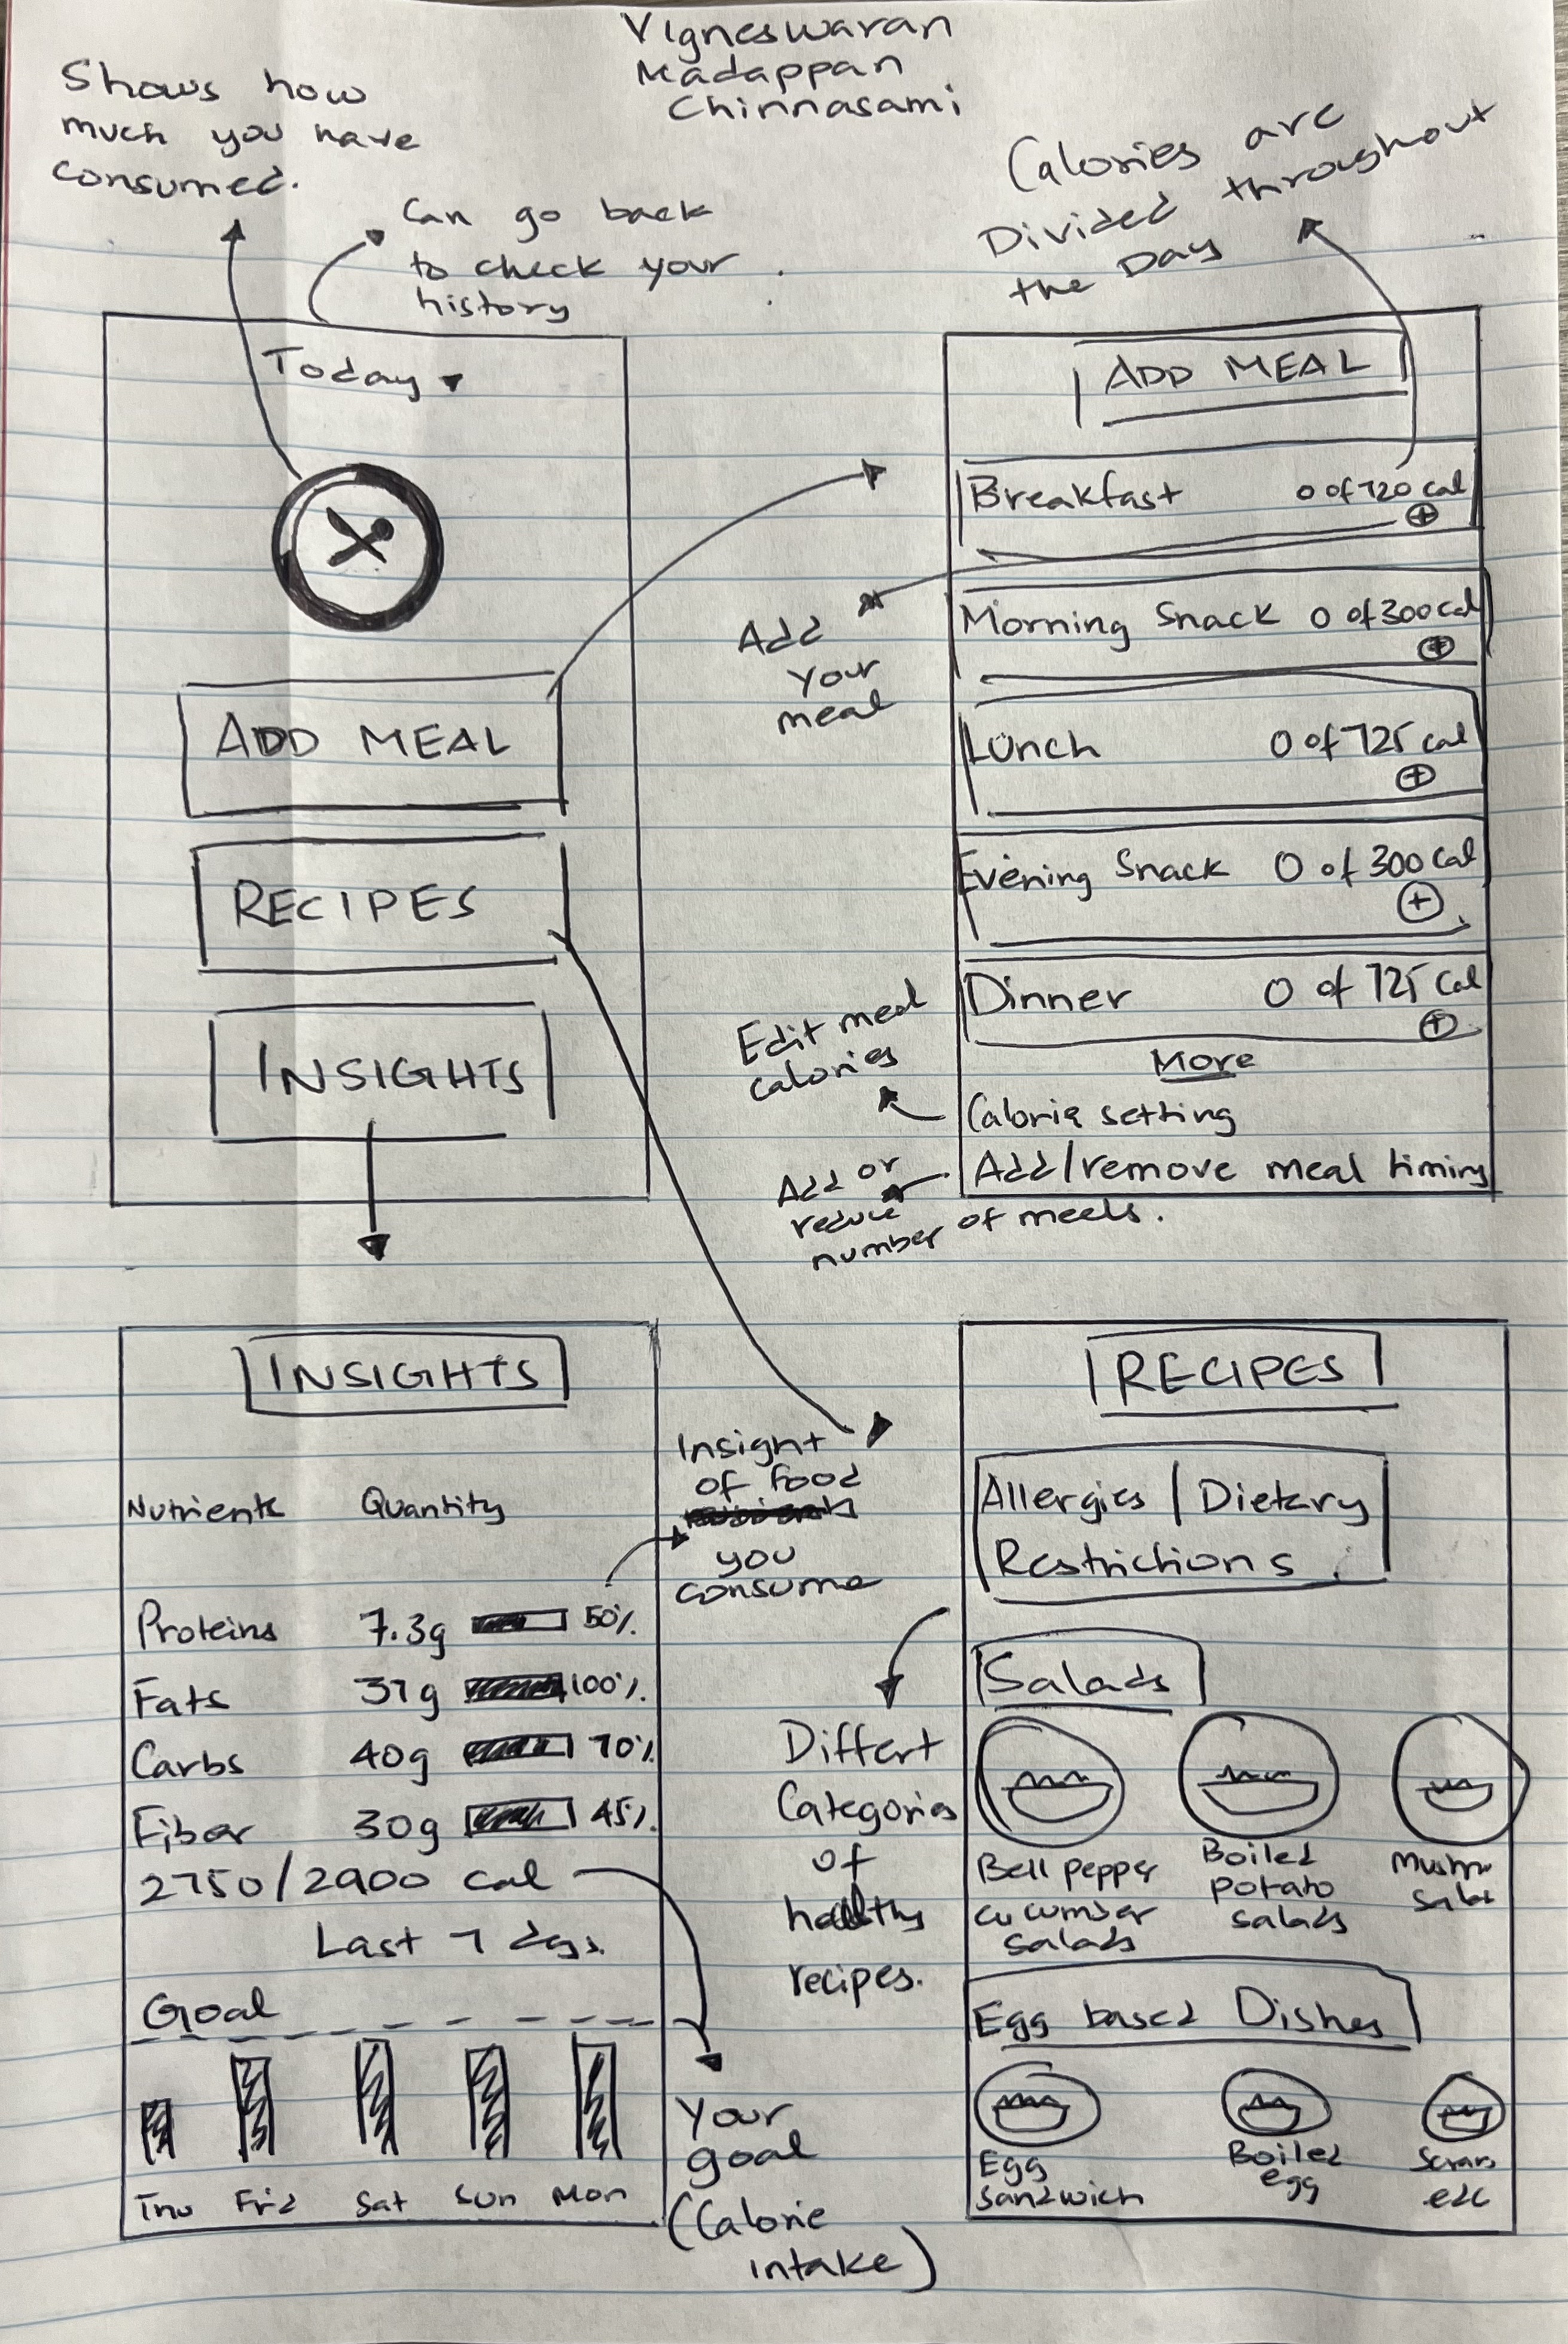 Vigneswaran
Madappan
Chinnasami
Shows how
much you have
consumed.
Can go back
to check your
history
Calories are
Divided throughout
the Day
Today
ADD MEAL
RECIPES
INSIGHTS
ADD MEAL
Breakfast 0 of 720 cal
Morning Snack 0 of 300 cal
Lunch 0 of 725 cal
Evening Snack 0 of 300 cal
Dinner 0 of 725 cal
More
Calorie setting
Add/remove meal timing
Add
your
meal
Edit meal
calories
Add or
reduce
number of meels.
INSIGHTS
Nutrients Quantity
Proteins 7.3g 50%
Fats 37g 100%
Carbs 40g 70%
Fiber 30g 45%
2750/2900 cal
Last 7 days.
Goal
Thu Fri Sat Sun Mon
Insight
of food
you
consume
Your
goal
(Calorie
intake)
Differt
Categories
of
healthy
recipes.
RECIPES
Allergies | Dietary
Restrictions
Salads
Bell pepper
cucumber
salads
Boiled
potato
salads
Egg based Dishes
Egg
sandwich
Boiled
egg